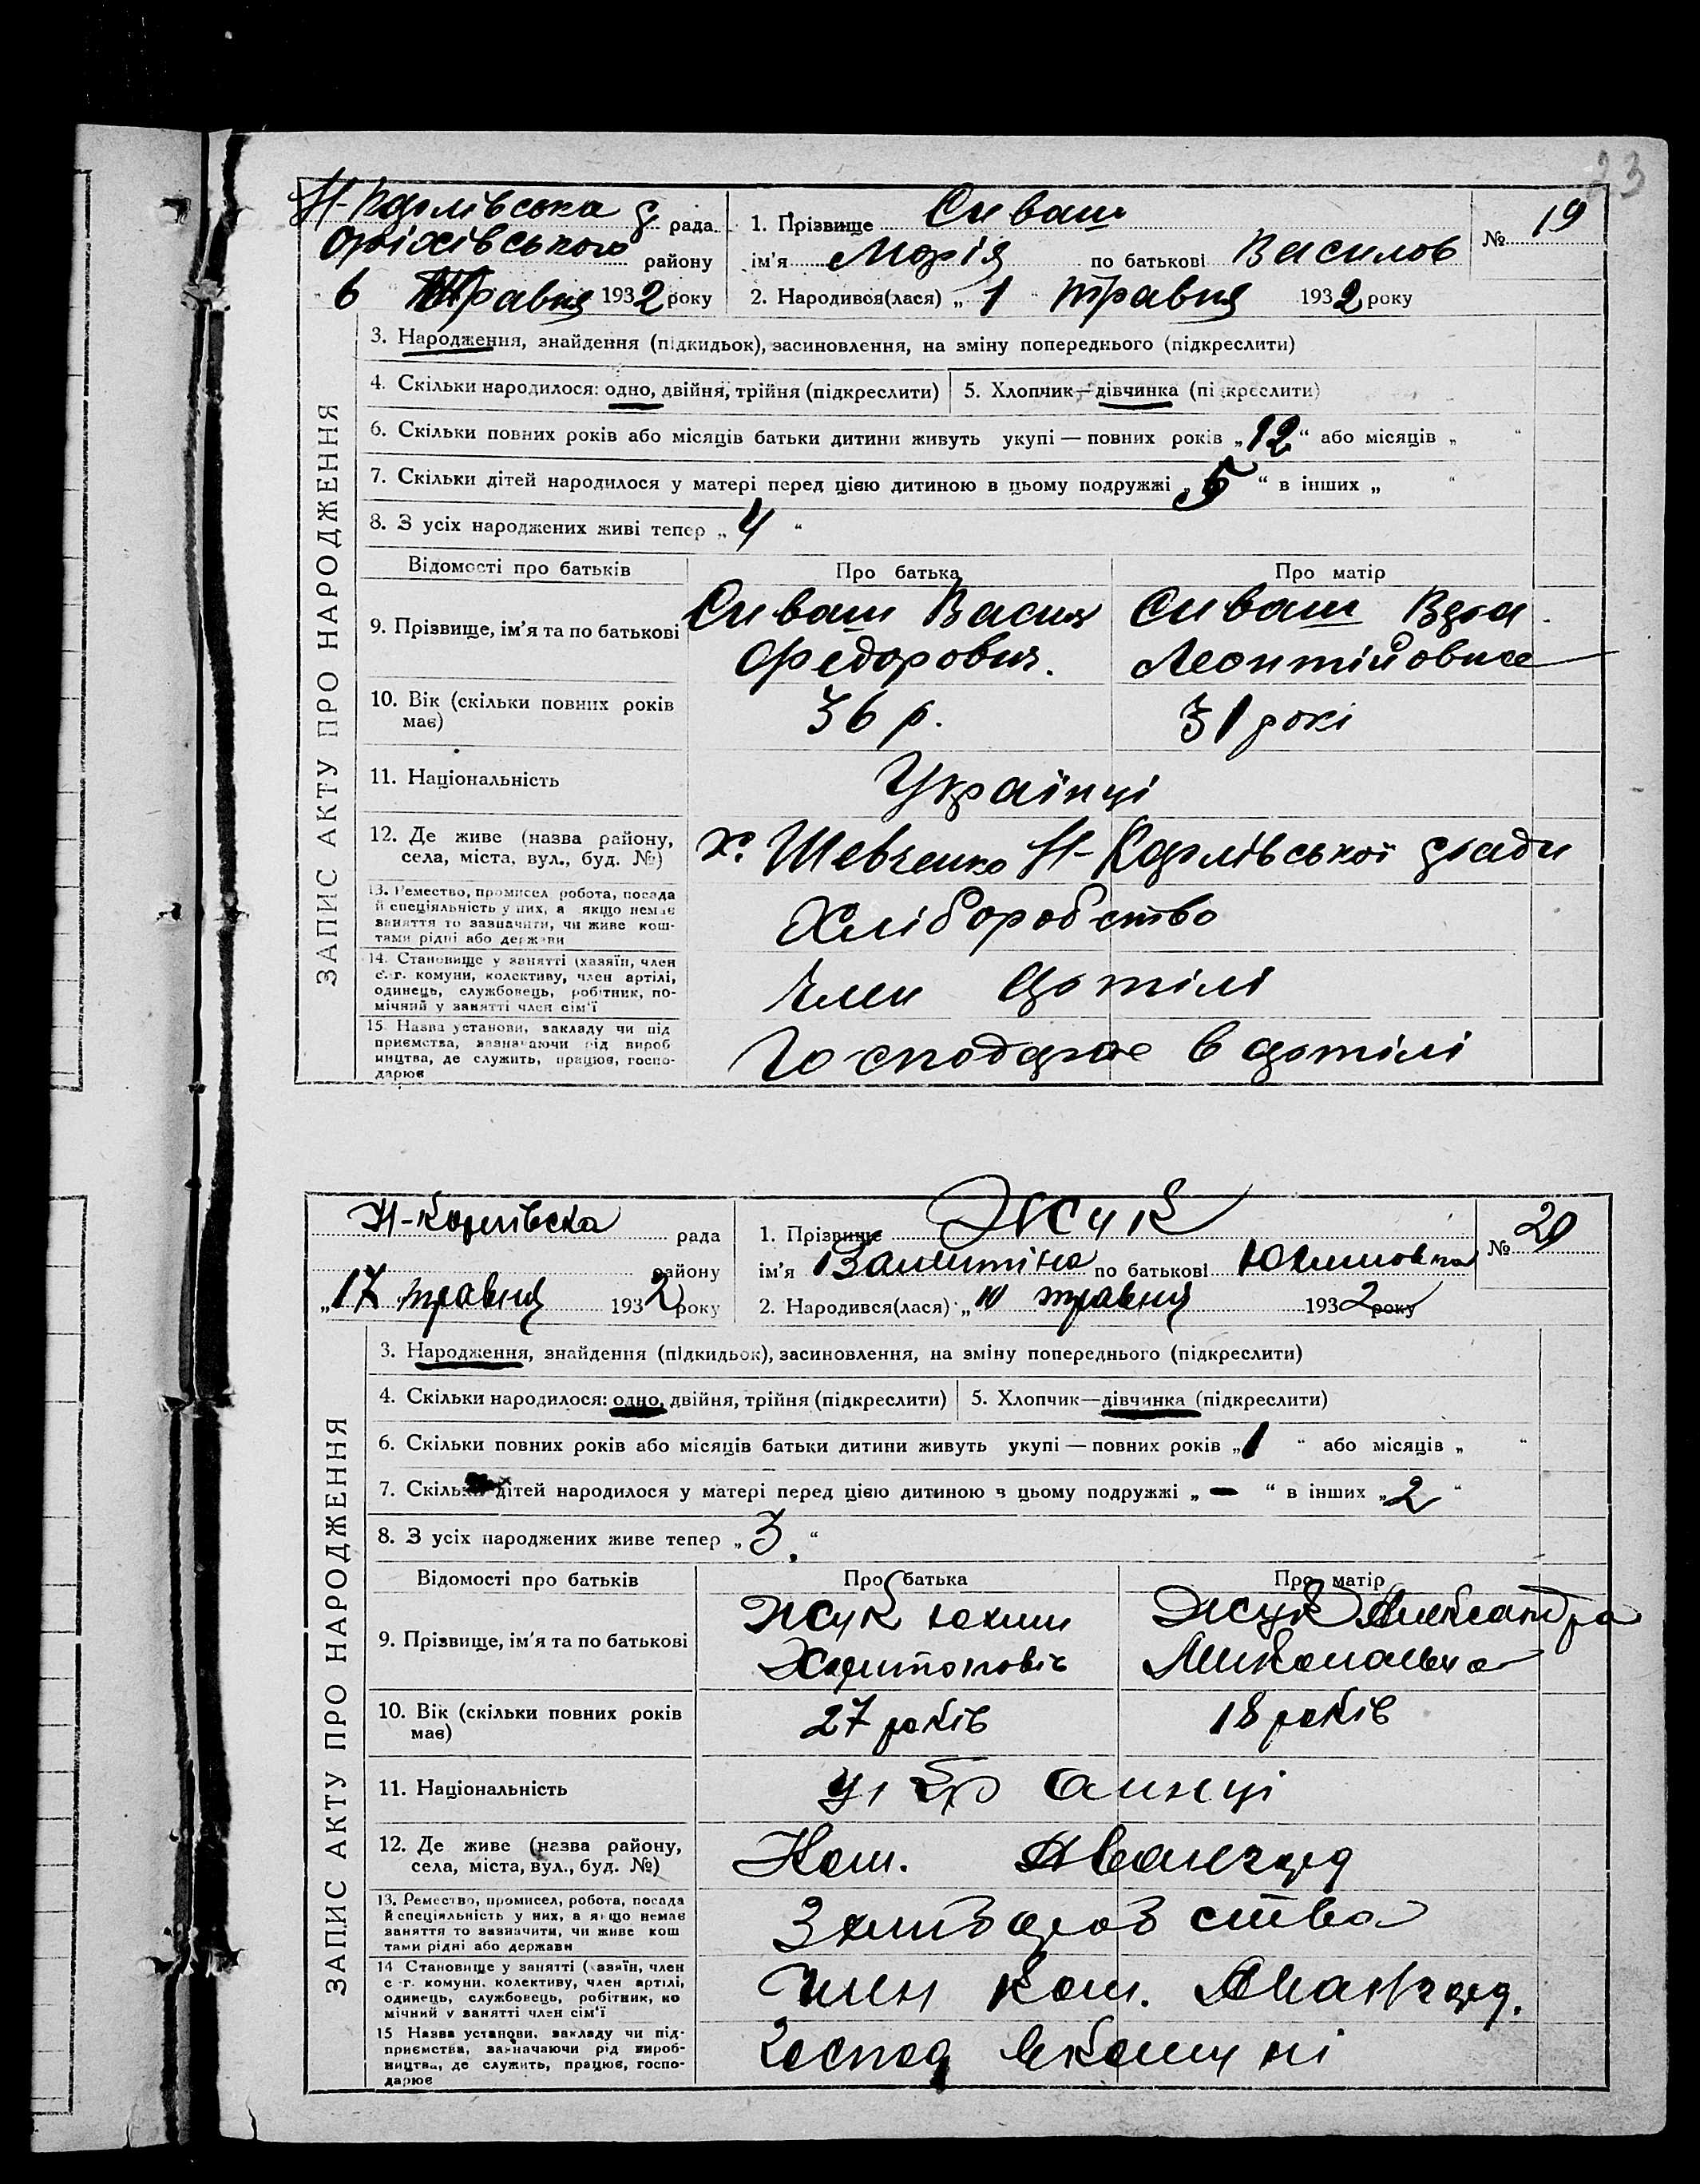 23
Н-Карлівська с. рада
Оріхівського району
6 Травня 1932 року
1. Прізвище Сиваш
ім’я Марія по батькові Василов
№ 19
2. Народився(лася) „ 1 “ травня 1932 року
ЗАПИС АКТУ ПРО НАРОДЖЕННЯ
3. Народження, знайдення (підкидьок), засиновлення, на зміну попереднього (підкреслити)
4. Скільки народилося: одно, двійня, трійня (підкреслити)
5. Хлопчик—дівчинка (підкреслити)
6. Скільки повних років або місяців батьки дитини живуть укупі — повних років „12“ або місяців „ “
7. Скільки дітей народилося у матері перед цією дитиною в цьому подружжі „5“ в інших „ “
8. З усіх народжених живі тепер „4“
Відомості про батьків
Про батька
Про матір
9. Прізвище, ім’я та по батькові
Сиваш Васил
Федорович.
Сиваш Вяра
Леонтійовна
10. Вік (скільки повних років
має)
36 р.
31 рокі
11. Національність
Українці
12. Де живе (назва району,
села, міста, вул., буд. №)
х. Шевченко Н-Карлівської сради
13. Ремество, промисел робота, посада
й спеціяльність у них, а якщо немає
заняття то зазначити, чи живе кош-
тами рідні або держави
Хліборобство
14. Становище у занятті (хазяїн, член
с.-г. комуни, колективу, член артілі,
одинець, службовець, робітник, по-
мічний у занятті член сім’ї
Член Артілі
15. Назва установи, закладу чи під
приємства, зазначаючи рід вироб
ництва, де служить, працює, госпо-
дарює
Господарює в артілі
Н-Карлівска рада
району
„17 травня 1932 року
1. Прізвище Жук
ім’я Валитіна по батькові Юхимовна
№ 20
2. Народився(лася) „10 травня 1932 року
ЗАПИС АКТУ ПРО НАРОДЖЕННЯ
3. Народження, знайдення (підкидьок), засиновлення, на зміну попереднього (підкреслити)
4. Скільки народилося: одно, двійня, трійня (підкреслити)
5. Хлопчик—дівчинка (підкреслити)
6. Скільки повних років або місяців батьки дитини живуть укупі — повних років „1 “ або місяців „ “
7. Скільки дітей народилося у матері перед цією дитиною в цьому подружжі „ — “ в інших „2“
8. З усіх народжених живе тепер „3.“
Відомості про батьків
Про батька
Про матір
9. Прізвище, ім’я та по батькові
Жук Юхим
Харитоновіч
Жук Александра
Миколаевна
10. Вік (скільки повних років
має)
27 років
18 років
11. Національність
12. Де живе (назва району,
села, міста, вул., буд. №)
Ком. Авангард
13. Ремество, промисел, робота, посада
й спеціяльність у них, а якщо немає
заняття то зазначити, чи живе кош
тами рідні або держави
14 Становище у занятті (хазяїн, член
с-г. комуни, колективу, член артілі,
одинець, службовець, робітник, по
мічний у занятті член сім’ї
Член Ком. Авангард.
15 Назва установи, закладу чи під-
приємства, зазначаючи рід вироб-
ництва, де служить, працює, госпо-
дарює
Господ вкомуні